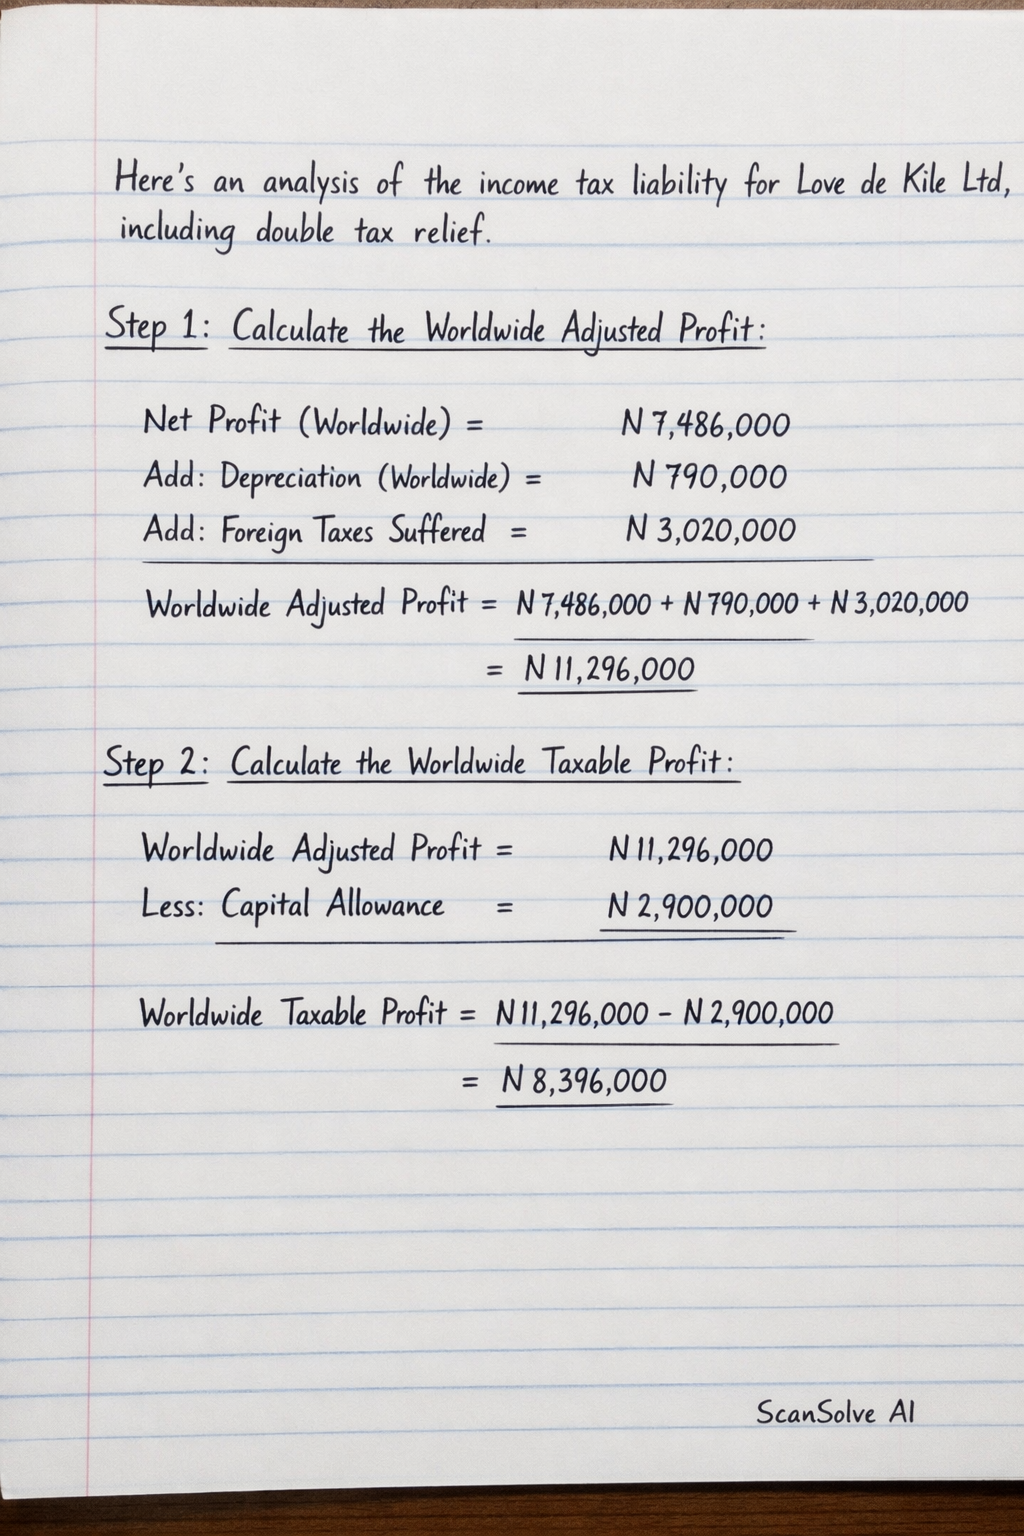 Here's an analysis of the income tax liability for Love de Kile Ltd,
including double tax relief.
Step 1: Calculate the Worldwide Adjusted Profit:
Net Profit (Worldwide) = N 7,486,000
Add: Depreciation (Worldwide) = N 790,000
Add: Foreign Taxes Suffered = N 3,020,000
Worldwide Adjusted Profit = N 7,486,000 + N 790,000 + N 3,020,000
= N 11,296,000
Step 2: Calculate the Worldwide Taxable Profit:
Worldwide Adjusted Profit = N 11,296,000
Less: Capital Allowance = N 2,900,000
Worldwide Taxable Profit = N 11,296,000 - N 2,900,000
= N 8,396,000
ScanSolve AI